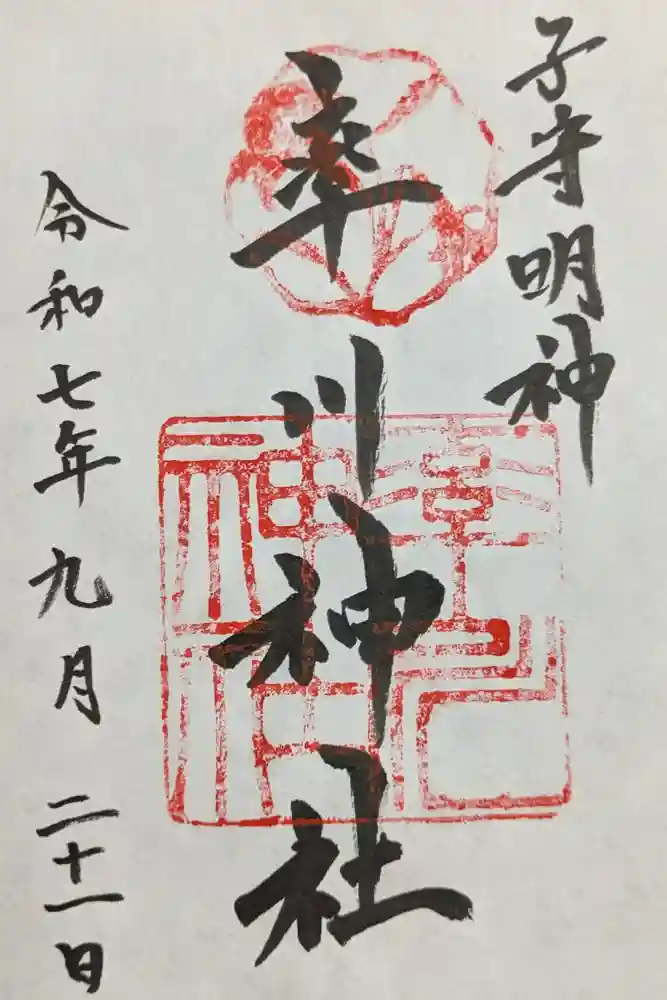 子守明神
率川神社
令和七年九月二十一日